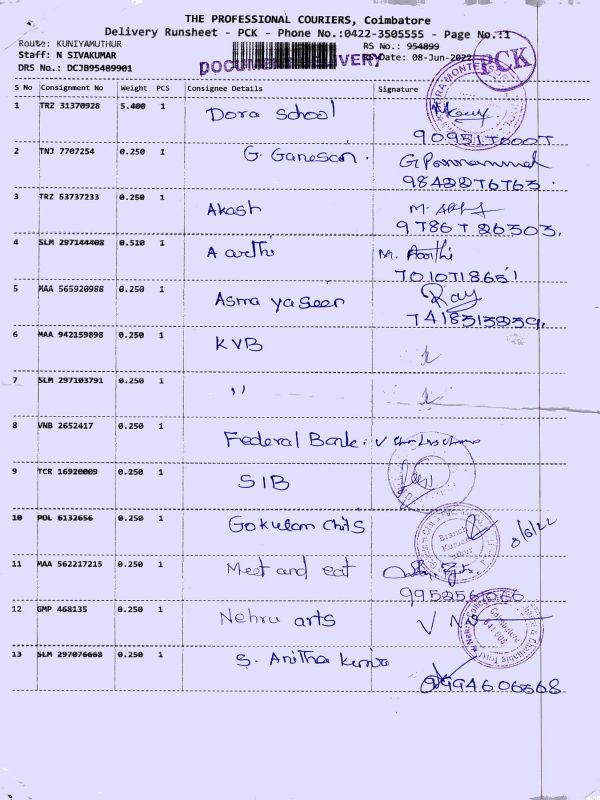 THE PROFESSIONAL COURIERS, Coimbatore
Delivery Runsheet - PCK - Phone No.:0422-3505555 - Page No.:1
Route: KUNIYAMUTHUR
RS No.: 954899
Staff: N SIVAKUMAR
RS Date: 08-Jun-2022
DRS No.: DCJB95489901
DELIVERY
PCK
S No Consignment No Weight PCS Consignee Details Signature
1 TRZ 31370928 5.400 1 Dora School
2 TNJ 7707254 0.250 1 G. Ganesan.
3 TRZ 53737233 0.250 1 Akash
9786726303.
4 SLM 297144408 0.510 1 Aarthi M. Aarthi
7010718651
5 MAA 565920988 0.250 1 Asma yaseen Ray
6 MAA 942159898 0.250 1 KVB
7 SLM 297103791 0.250 1 ,,
8 VNB 2652417 0.250 1 Federal Bank.
9 TCR 16920009 0.250 1 SIB
10 POL 6132656 0.250 1 Gokulam Chits 8/6/22
11 MAA 562217215 0.250 1 Meet and eat
12 GMP 468135 0.250 1 Nehru arts
13 SLM 297076668 0.250 1 S. Anitha Kumar